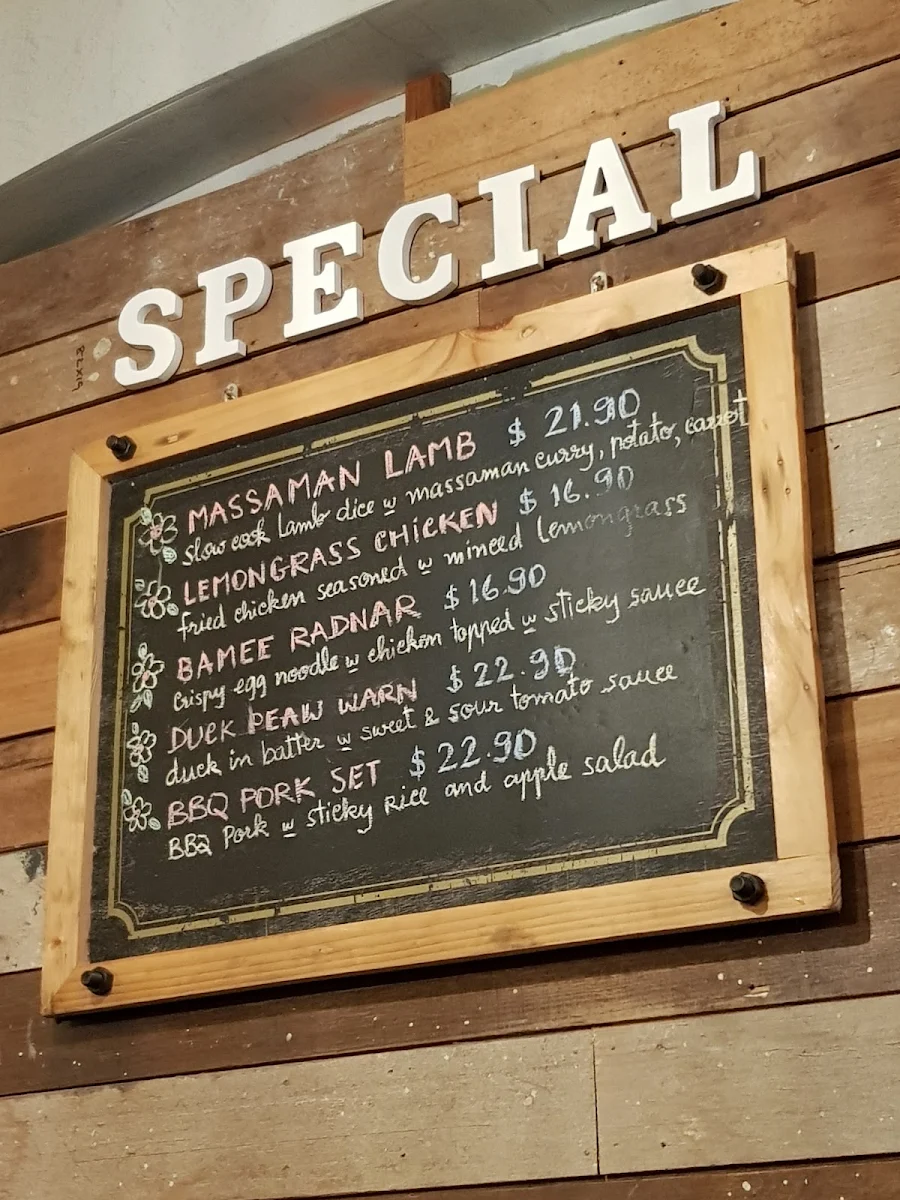 SPECIAL
MASSAMAN LAMB $ 21.90
slow cook lamb dice w massaman curry, potato, carrot
LEMONGRASS CHICKEN $ 16.90
fried chicken seasoned w minced lemongrass
BAMEE RADNAR $ 16.90
Crispy egg noodle w chicken topped w sticky sauce
DUCK PEAW WARN $ 22.90
duck in batter w sweet & sour tomato sauce
BBQ PORK SET $ 22.90
BBQ Pork w sticky Rice and apple salad